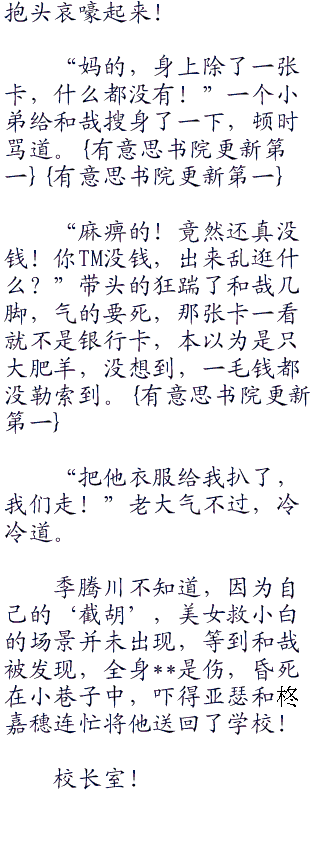 抱头哀嚎起来！
“妈的，身上除了一张
卡，什么都没有！”一个小
弟给和哉搜身了一下，顿时
骂道。{有意思书院更新第
一}{有意思书院更新第一}
“麻痹的！竟然还真没
钱！你TM没钱，出来乱逛什
么？”带头的狂踹了和哉几
脚，气的要死，那张卡一看
就不是银行卡，本以为是只
大肥羊，没想到，一毛钱都
没勒索到。{有意思书院更新
第一}
“把他衣服给我扒了，
我们走！”老大气不过，冷
冷道。
季腾川不知道，因为自
己的‘截胡’，美女救小白
的场景并未出现，等到和哉
被发现，全身**是伤，昏死
在小巷子中，吓得亚瑟和柊
嘉穗连忙将他送回了学校！
校长室！